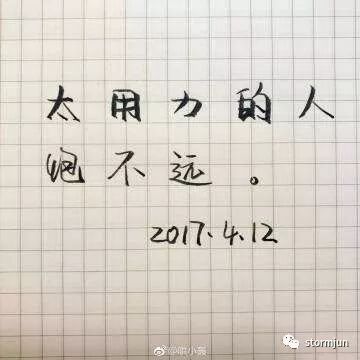 太用力的人
跑不远。
2017.4.12
@唯小轰
stormjun